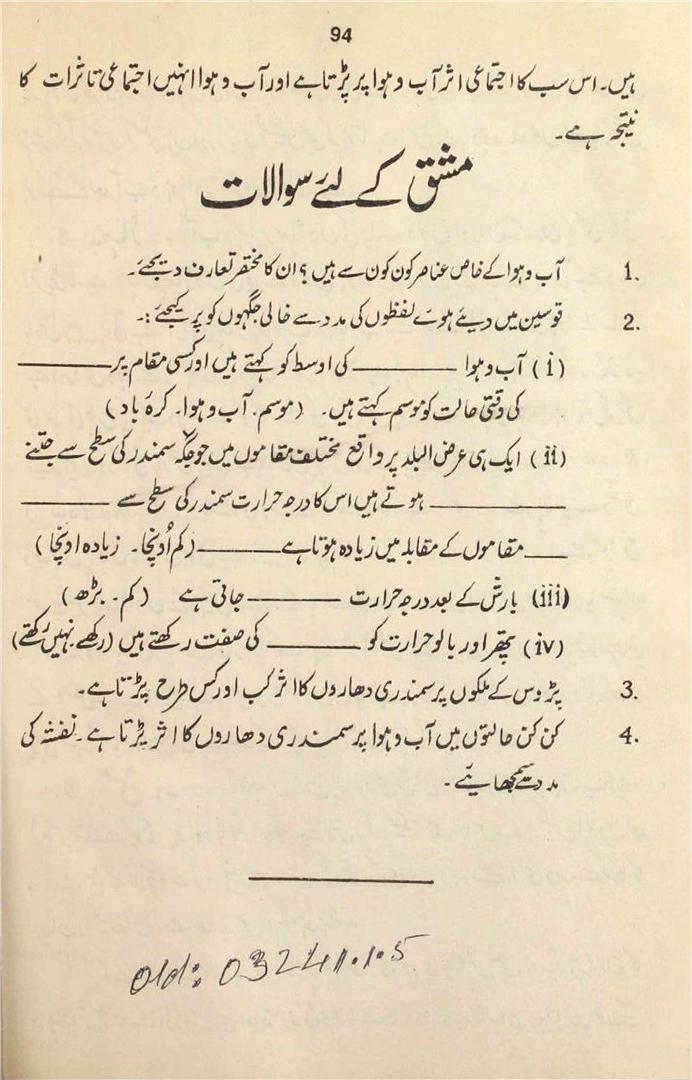 94
ہیں۔ اس سب کا اجتماعی اثر آب و ہوا پر پڑتا ہے اور آب و ہوا انہیں اجتماعی تاثرات کا
نیتجہ ہے۔
مشق کے لئے سوالات
1. آب و ہوا کے خاص عناصر کون کون سے ہیں؟ ان کا مختصر تعارف دیجئے۔
2. قوسین میں دیئے ہوئے لفظوں کی مدد سے خالی جگہوں کو پر کیجئے:۔
(i) آب و ہوا ــــــــــــ کی اوسط کو کہتے ہیں اور کسی مقام پر ــــــــــــ
کی وقتی حالت کو موسم کہتے ہیں۔ (موسم۔ آب و ہوا۔ کرۂ باد)
(ii) ایک ہی عرض البلد پر واقع مختلف مقاموں میں جو جگہ سمندر کی سطح سے جتنے
ــــــــــــ ہوتے ہیں اس کا درجہ حرارت سمندر کی سطح سے ــــــــــــ
ــــــ مقاموں کے مقابلہ میں زیادہ ہوتا ہے ــــــــــــ (کم اُونچا۔ زیادہ اونچا)
(iii) بارش کے بعد درجہ حرارت ــــــــــــ جاتی ہے (کم۔ بڑھ)
(iv) پتھر اور بالو حرارت کو ــــــــــــ کی صفت رکھتے ہیں (رکھے۔ نہیں رکھتے)
3. پڑوس کے ملکوں پر سمندری دھاروں کا اثر کب اور کس طرح پڑتا ہے۔
4. کن کن حالتوں میں آب و ہوا پر سمندری دھاروں کا اثر پڑتا ہے۔ نقشہ کی
مدد سے سمجھایئے۔
old: 03241.1.5